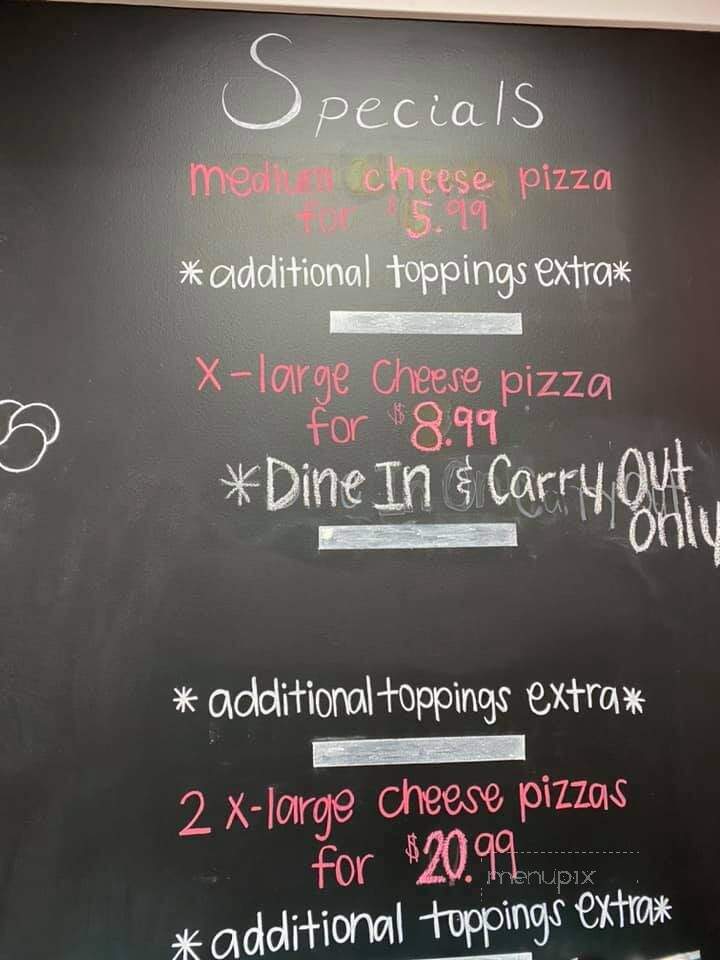 Specials
medium cheese pizza
for $5.99
*additional toppings extra*
x-large cheese pizza
for $8.99
*Dine In & Carry Out
only
*additional toppings extra*
2 x-large cheese pizzas
for $20.99
menupix
*additional toppings extra*